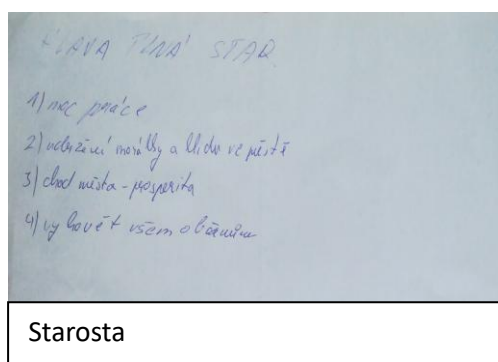 HLAVA PLNÁ STAR
1) moc práce
2) udržení morálky a klidu ve městě
3) chod města - prosperita
4) vyhovět všem občanům
Starosta